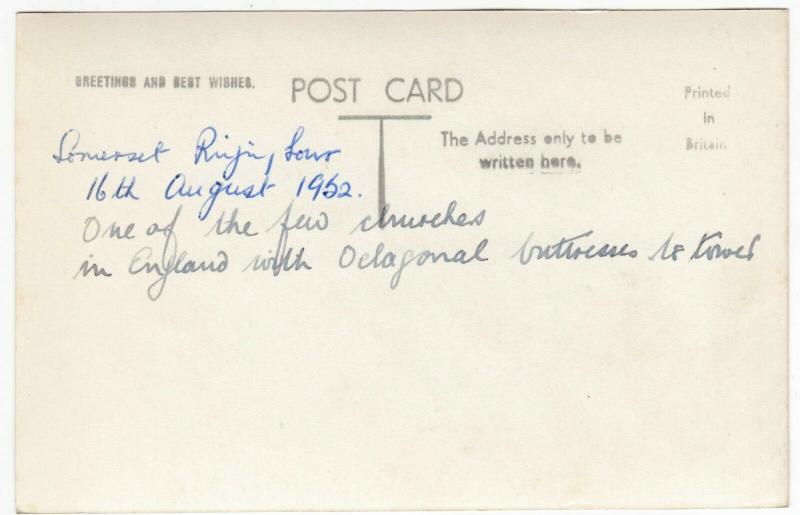 GREETINGS AND BEST WISHES.
POST CARD
Printed
in
Britain
The Address only to be
written here.
Somerset Ringing Tour
16th August 1952.
One of the few churches
in England with Octagonal buttresses to tower